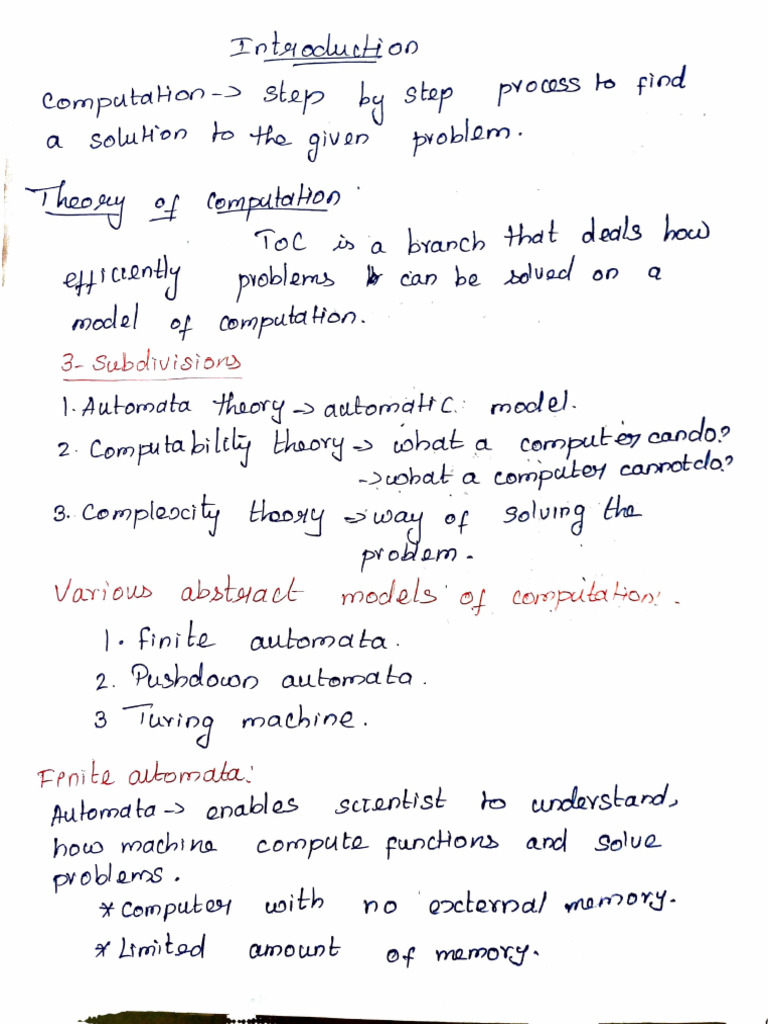 Introduction
Computation -> step by step process to find
a solution to the given problem.
Theory of Computation
TOC is a branch that deals how
efficiently problems can be solved on a
model of computation.
3- Subdivisions
1. Automata theory -> automatic model.
2. Computability theory -> what a computer can do?
-> what a computer cannot do?
3. Complexity theory -> way of solving the
problem.
Various abstract models of computation:
1. finite automata.
2. Pushdown automata.
3 Turing machine.
Finite automata:
Automata -> enables scientist to understand,
how machine compute functions and solve
problems.
* Computer with no external memory.
* Limited amount of memory.